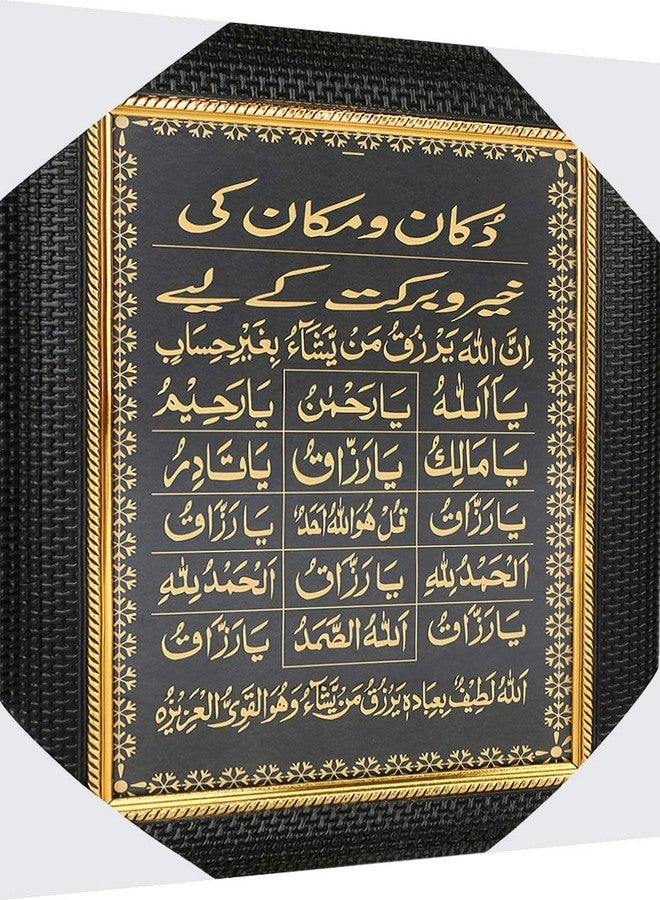 دُکان و مکان کی
خیر و برکت کے لیے
اِنَّ اللهَ یَرْزُقُ مَنْ یَّشَآءُ بِغَیْرِ حِسَابٍ
یَا اَللهُ یَارَحْمٰنُ یَارَحِیْمُ
یَامَالِكُ یَارَزَّاقُ یَاقَادِرُ
یَارَزَّاقُ قُلْ هُوَ اللهُ اَحَدٌ یَارَزَّاقُ
اَلْحَمْدُ لِلّٰهِ یَارَزَّاقُ اَلْحَمْدُ لِلّٰهِ
یَارَزَّاقُ اَللهُ الصَّمَدُ یَارَزَّاقُ
اَللهُ لَطِیْفٌ بِعِبَادِهٖ یَرْزُقُ مَنْ یَّشَآءُ وَهُوَ الْقَوِیُّ الْعَزِیْزُ